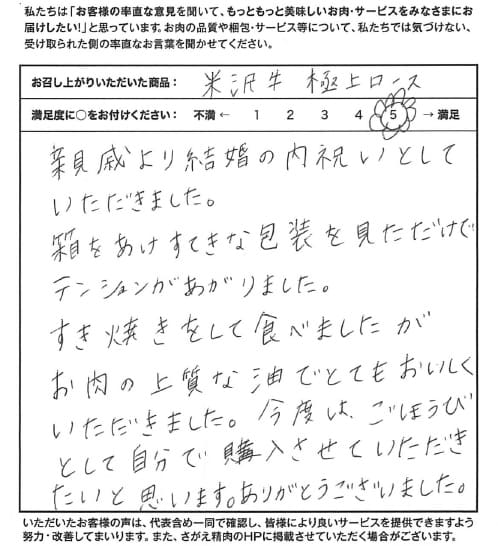 私たちは「お客様の率直な意見を聞いて、もっともっと美味しいお肉・サービスをみなさまにお
届けしたい!」と思っています。お肉の品質や梱包・サービス等について、私たちでは気づけない、
受け取られた側の率直なお言葉を聞かせてください。
お召し上がりいただいた商品： 米沢牛 極上ロース
満足度に○をお付けください： 不満 ← 1 2 3 4 5 → 満足
親戚より結婚の内祝いとして
いただきました。
箱をあけすてきな包装を見ただけで
テンションがあがりました。
すき焼きをして食べましたが
お肉の上質な油でとてもおいしく
いただきました。今度は、ごほうび
として自分で購入させていただき
たいと思います。ありがとうございました。
いただいたお客様の声は、代表含め一同で確認し、皆様により良いサービスを提供できますよう
努力・改善してまいります。また、さがえ精肉のHPに掲載させていただく場合がございます。